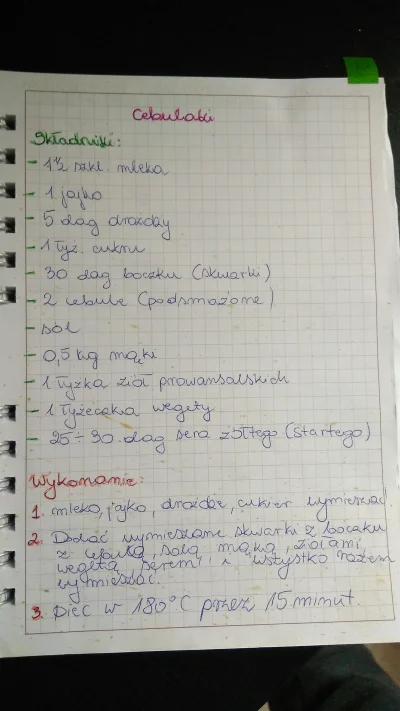 Cebulaki
Składniki:
- 1½ szkl. mleka
- 1 jajko
- 5 dag drożdży
- 1 łyż. cukru
- 30 dag boczku (skwarki)
- 2 cebule (podsmażone)
- sól
- 0,5 kg mąki
- 1 łyżka ziół prowansalskich
- 1 łyżeczka wegety
- 25÷30 dag sera żółtego (startego)
Wykonanie:
1. mleko, jajko, drożdże, cukier wymieszać.
2. Dodać wymieszane skwarki z boczku
z cebulą, solą, mąką, ziołami,
wegetą, serem i wszystko razem
wymieszać.
3. piec w 180°C przez 15 minut.